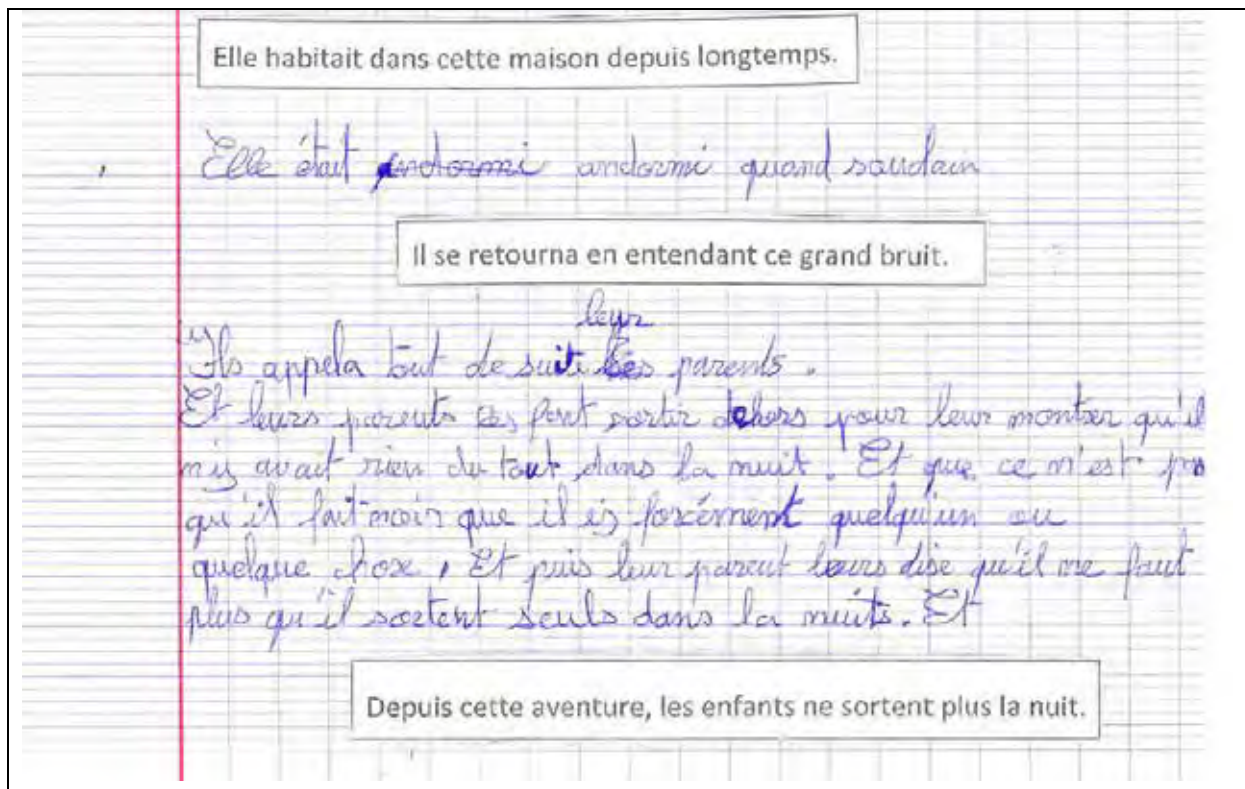 Elle habitait dans cette maison depuis longtemps.
Elle était andormi andormi quand soudain
Il se retourna en entendant ce grand bruit.
leur
Ils appela tout de suite parents.
Et leurs parents les font sortir dehors pour leur montrer qu'il
n'iy avait rien du tout dans la nuit. Et que ce n'est pas
qu'il fait noir que il iy forcément quelqu'un ou
quelque chose, Et puis leur parent leurs dise qu'il ne faut
plus qu'il sortent seuls dans la nuits. Et
Depuis cette aventure, les enfants ne sortent plus la nuit.